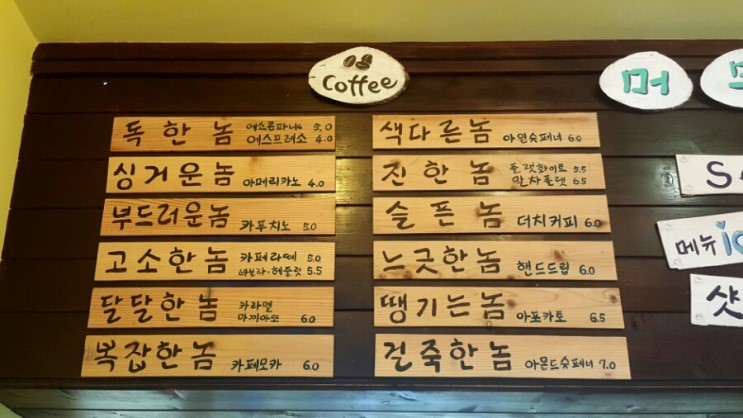 Coffee
독한놈 에소콤파나 5.0
에스프레소 4.0
싱거운놈 아메리카노 4.0
부드러운놈 카푸치노 5.0
고소한놈 카페라떼 5.0
바닐라·헤즐럿 5.5
달달한놈 카라멜
마끼아또 6.0
복잡한놈 카페모카 6.0
색다른놈 아인슈페너 6.0
진한놈 플랫화이트 5.5
말차플랫 6.5
슬픈놈 더치커피 6.0
느긋한놈 핸드드립 6.0
땡기는놈 아포카토 6.5
걸죽한놈 아몬드슈페너 7.0
머
메뉴
샷